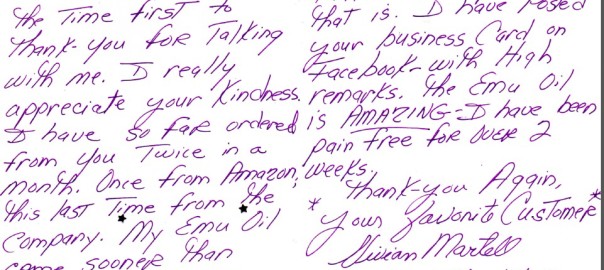 the Time first to
thank-you for Talking
with me. I really
appreciate your Kindness.
I have so far ordered
from you Twice in a
month. Once from Amazon,
this last Time from the
Company. My Emu Oil
came sooner than
that is. I have Posed
your business Card on
Facebook-with High
remarks. the Emu Oil
is AMAZING-I have been
pain free for over 2
weeks.
Thank-you Again,
* your favorite Customer *
Vivian Martell